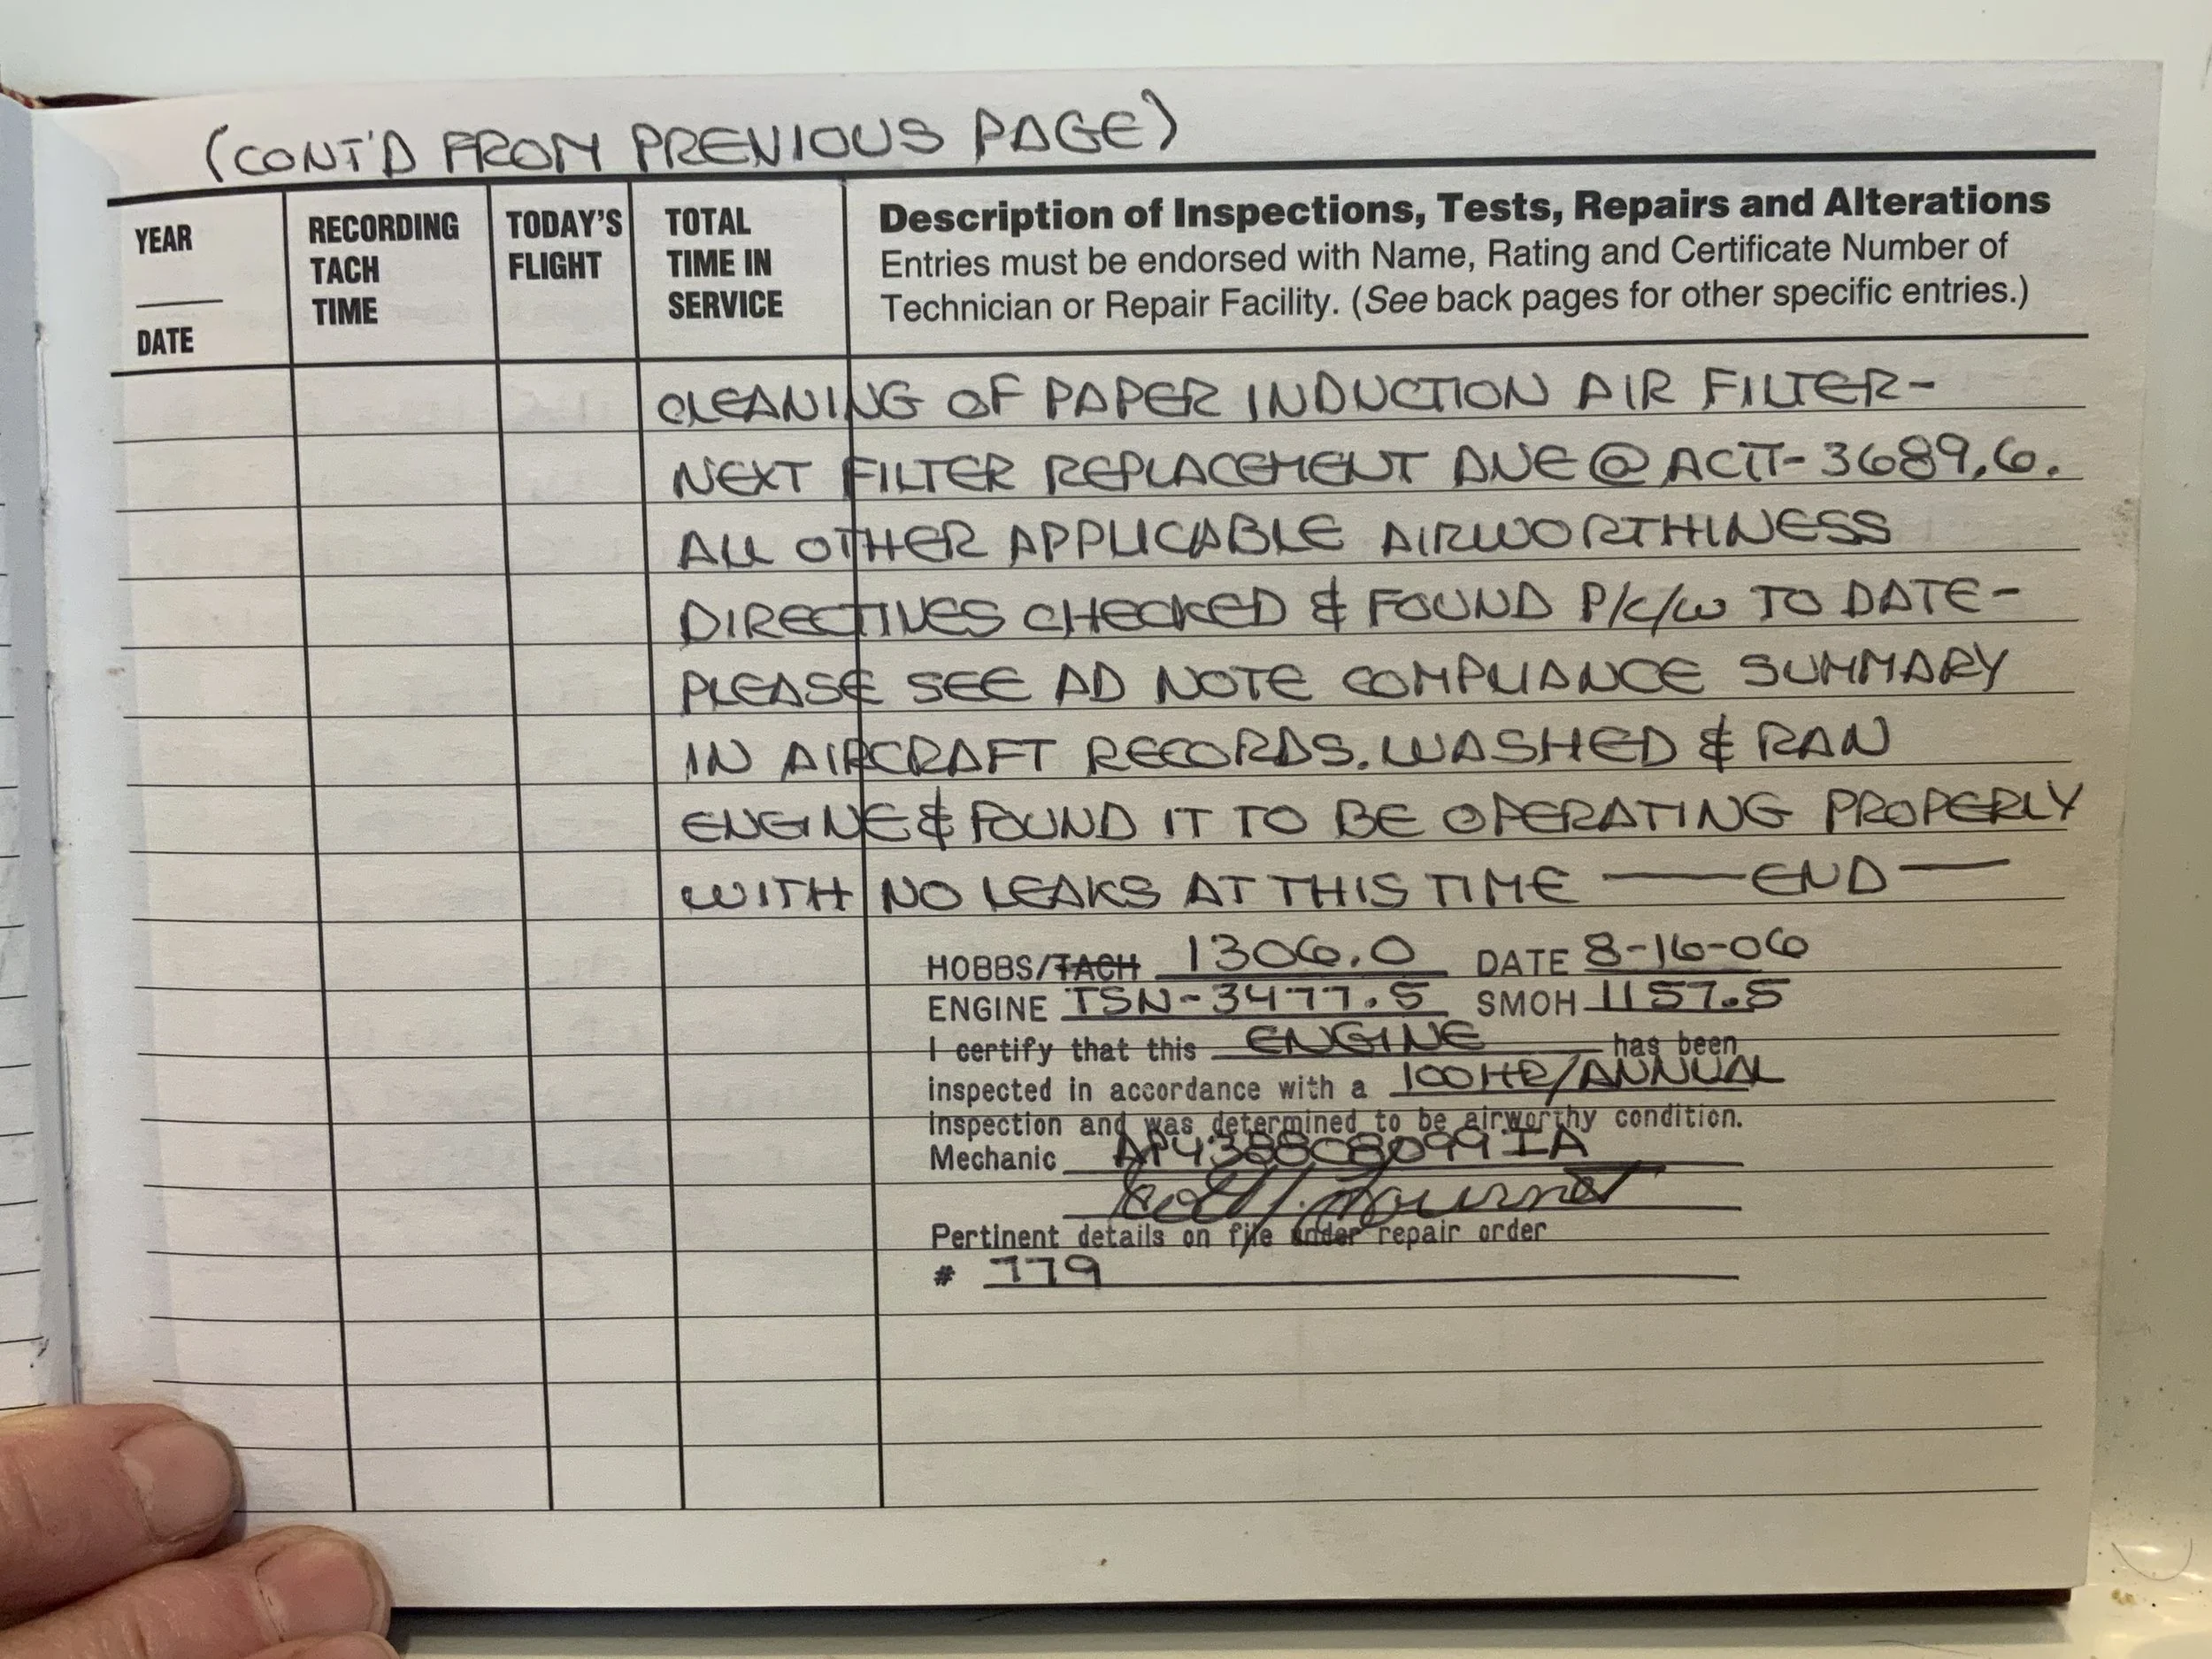 (CONT'D FROM PREVIOUS PAGE)
YEAR
DATE
RECORDING
TACH
TIME
TODAY'S
FLIGHT
TOTAL
TIME IN
SERVICE
Description of Inspections, Tests, Repairs and Alterations
Entries must be endorsed with Name, Rating and Certificate Number of
Technician or Repair Facility. (See back pages for other specific entries.)
CLEANING OF PAPER INDUCTION AIR FILTER-
NEXT FILTER REPLACEMENT DUE @ ACTT-3689.6.
ALL OTHER APPLICABLE AIRWORTHINESS
DIRECTIVES CHECKED & FOUND P/C/W TO DATE-
PLEASE SEE AD NOTE COMPLIANCE SUMMARY
IN AIRCRAFT RECORDS. WASHED & RAN
ENGINE & FOUND IT TO BE OPERATING PROPERLY
WITH NO LEAKS AT THIS TIME — END —
HOBBS/TACH 1306.0 DATE 8-16-06
ENGINE TSN-3477.5 SMOH 1157.5
I certify that this ENGINE has been
inspected in accordance with a 100HR/ANNUAL
inspection and was determined to be airworthy condition.
Mechanic AP438808099IA
Pertinent details on file under repair order
# 779